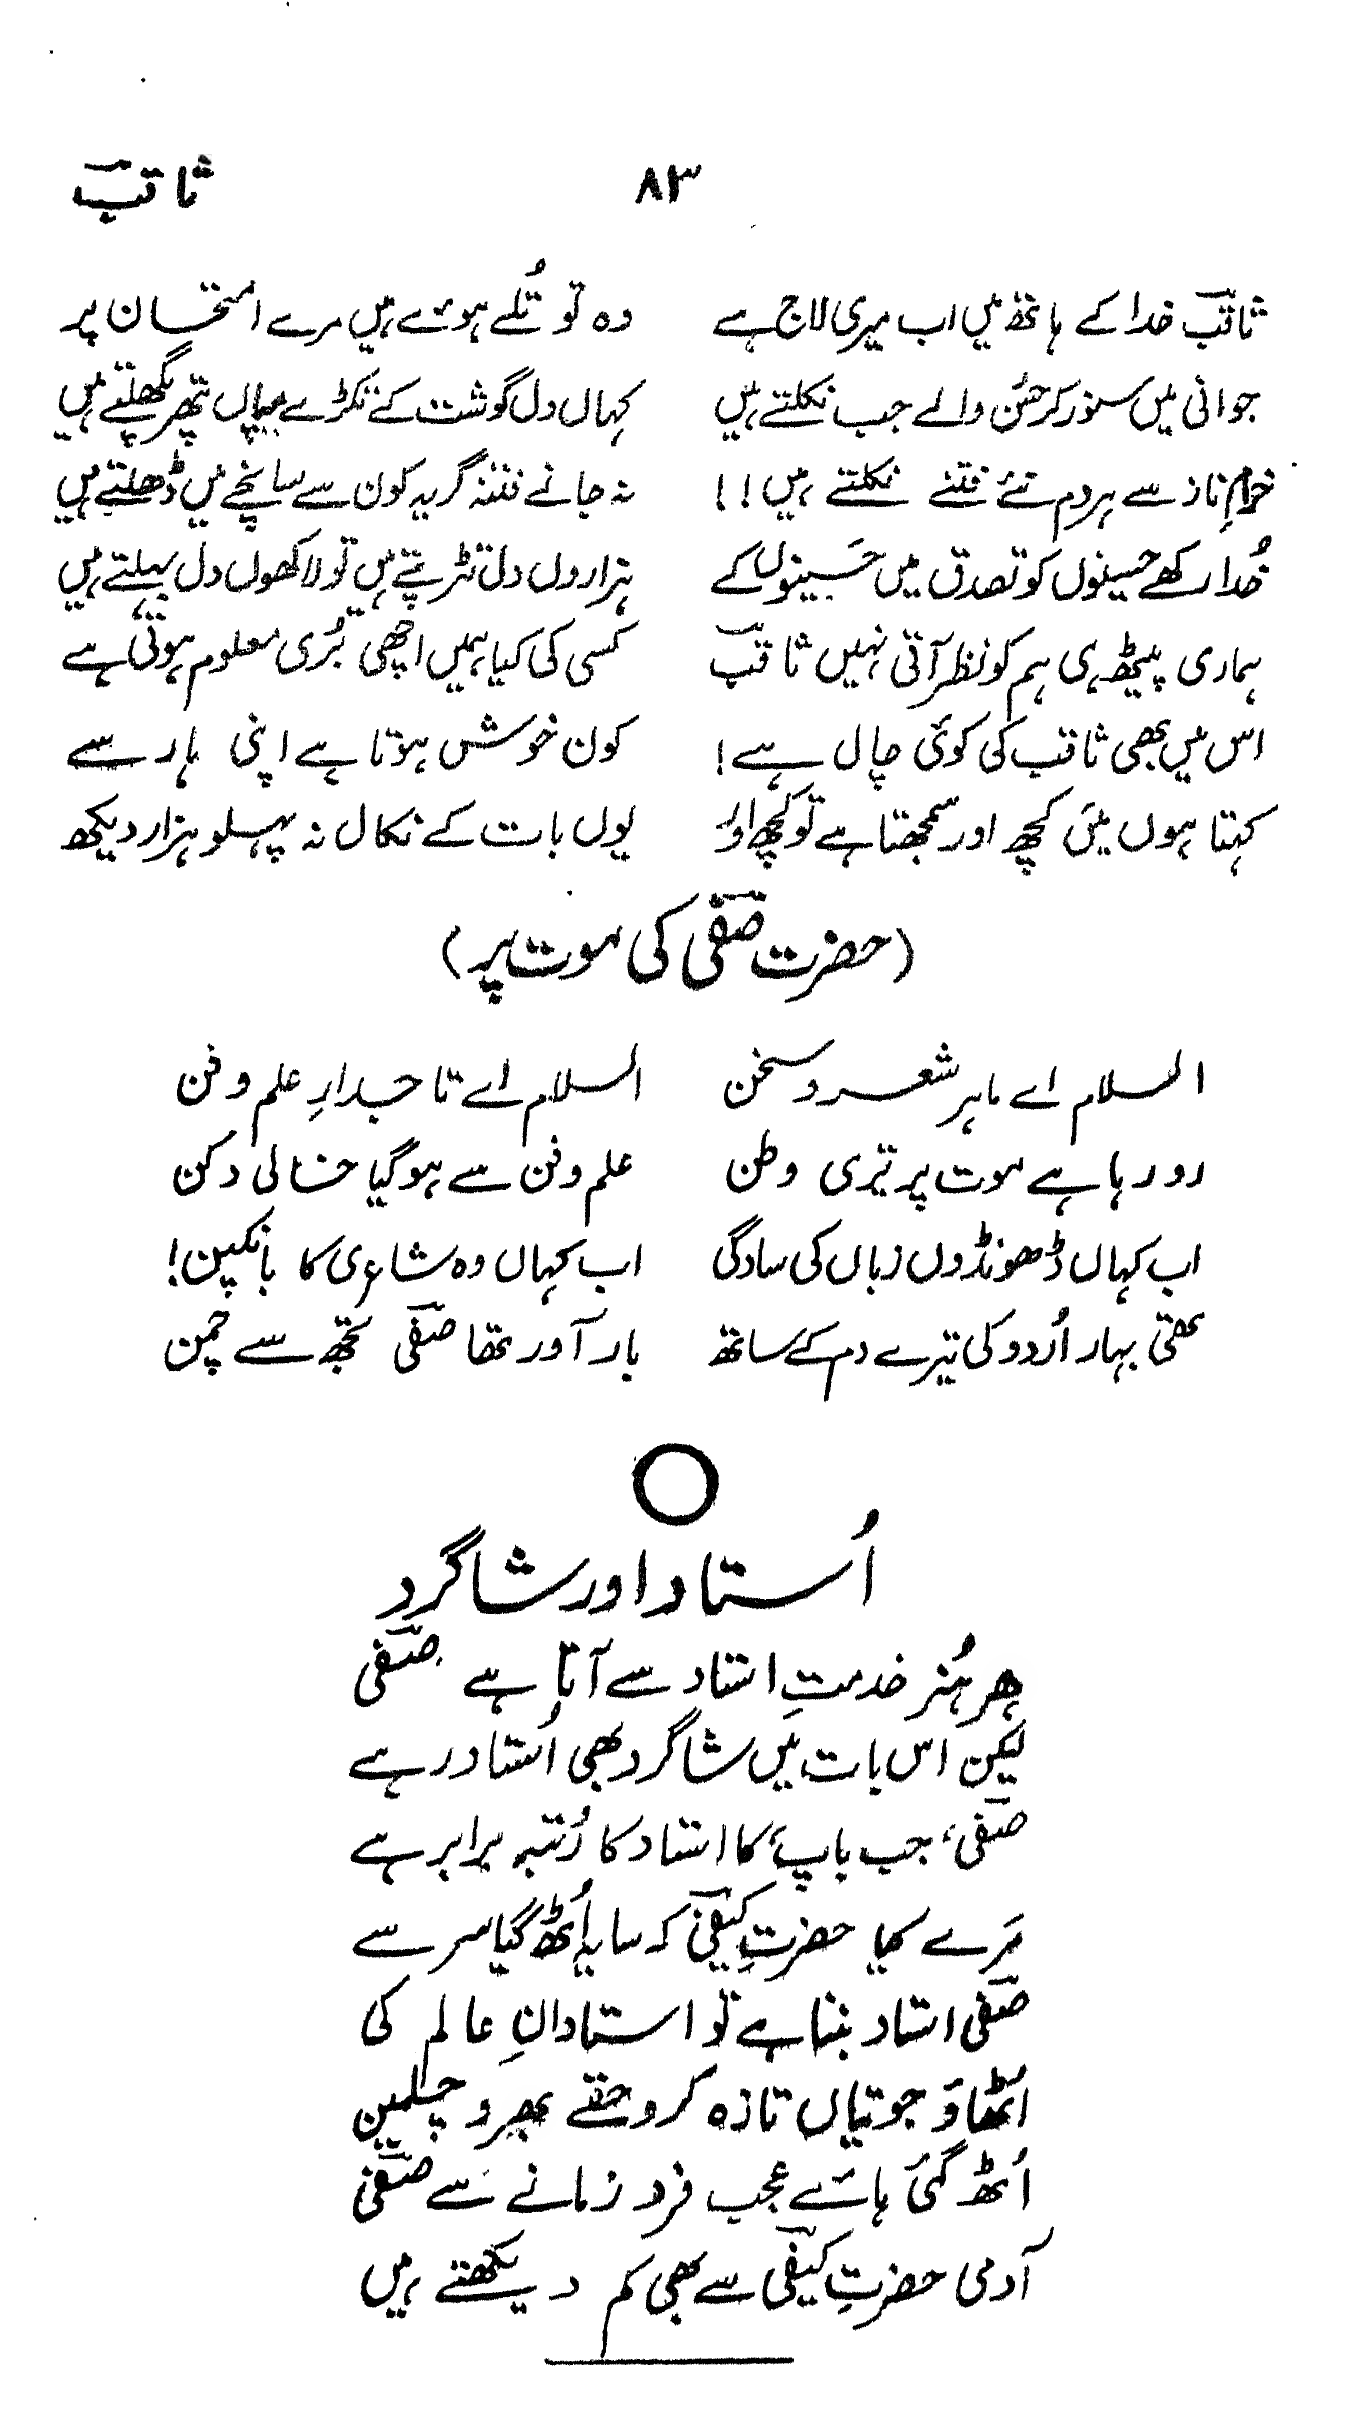 ثاقبؔ ۸۳
ثاقبؔ خدا کے ہاتھ میں اب میری لاج ہے وہ تو تُلے ہوئے ہیں مرے امتحان پر
جوانی میں سنور کر حسُن والے جب نکلتے ہیں کہاں دل گوشت کے ٹکڑے یہاں پتھر پگھلتے ہیں
خرامِ ناز سے ہر دم نئے فتنے نکلتے ہیں!! نہ جانے فتنہ گر یہ کون سے سانچے میں ڈھلتے ہیں
خُدا رکھے حسینوں کو تصدق میں حَسینوں کے ہزاروں دل تڑپتے ہیں تو لاکھوں دل بہلتے ہیں
ہماری پیٹھ ہی ہم کو نظر آتی نہیں ثاقبؔ کسی کی کیا ہمیں اچھی بُری معلوم ہوتی ہے
اس میں بھی ثاقب کی کوئی چال ہے! کون خوش ہوتا ہے اپنی ہار سے
کہتا ہوں میَں کچھ اور سمجھتا ہے تو کچھ اور یوں بات کے نکال نہ پہلو ہزار دیکھ
(حضرت صفیؔ کی موت پر)
السلام اے ماہرِ شعر و سخن السلام اے تاجدارِ علم و فن
رو رہا ہے موت پر تیری وطن علم و فن سے ہو گیا خالی دکن
اب کہاں ڈھونڈوں زباں کی سادگی اب کہاں وہ شاعری کا بانکپن!
تھی بہار اُردو کی تیرے دم کے ساتھ بار آور تھا صفیؔ تجھ سے چمن
اُستاد اور شاگرد
ہر ہُنر خدمتِ استاد سے آتا ہے صفیؔ
لیکن اس بات میں شاگرد بھی اُستاد رہے
صفیؔ، جب باپ کا استاد کا رُتبہ برابر ہے
مَرے کیا حضرتِ کیفیؔ کہ سایہ اُٹھ گیا سر سے
صفیؔ استاد بننا ہے تو استادانِ عالم کی
اُٹھاؤ جوتیاں تازہ کرو حقے بھرو چلمیں
اُٹھ گئی ہائے عجب فرد زمانے سے صفیؔ
آدمی حضرتِ کیفیؔ سے بھی کم دیکھتے ہیں